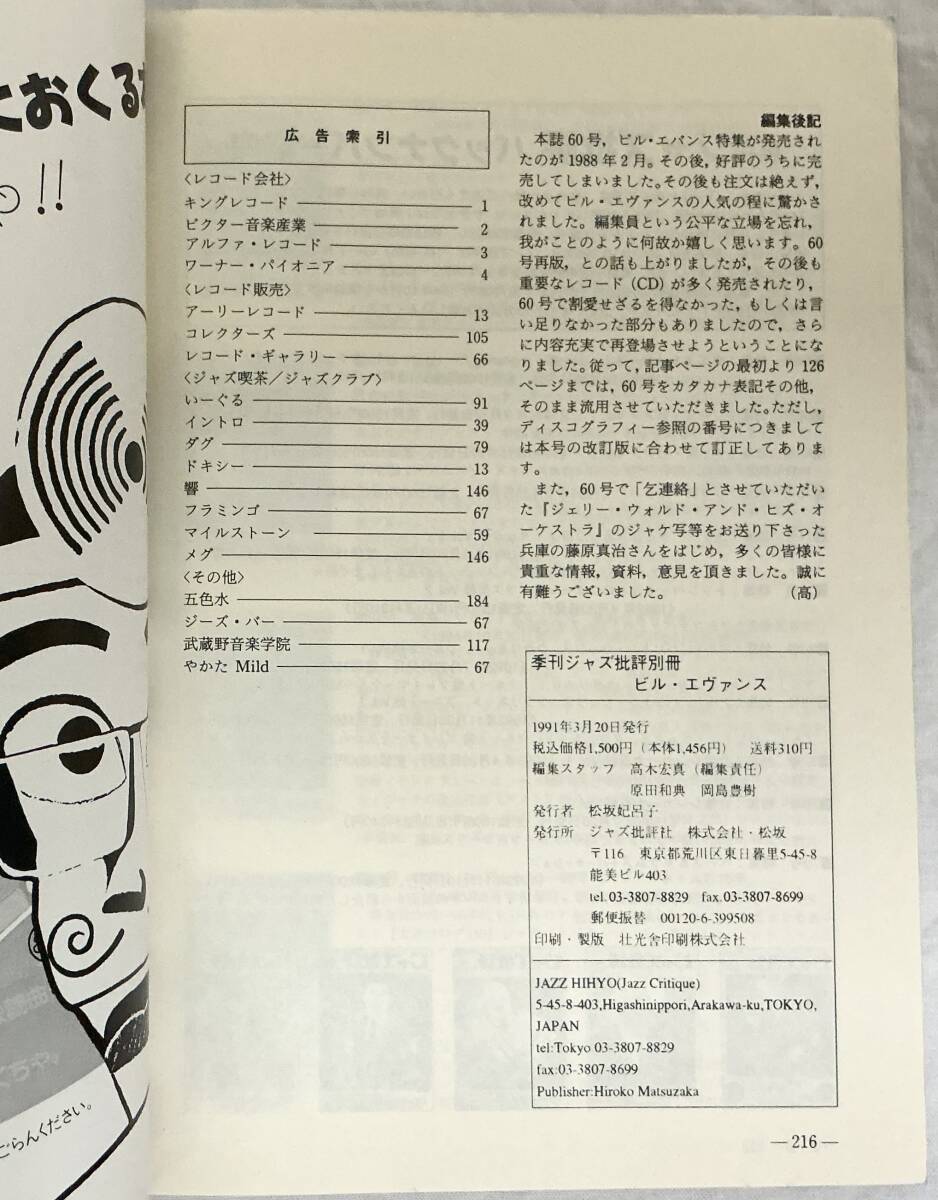 におくる
!!
ごらんください。
広告索引
〈レコード会社〉
キングレコード 1
ビクター音楽産業 2
アルファ・レコード 3
ワーナー・パイオニア 4
〈レコード販売〉
アーリーレコード 13
コレクターズ 105
レコード・ギャラリー 66
〈ジャズ喫茶／ジャズクラブ〉
いーぐる 91
イントロ 39
ダグ 79
ドキシー 13
響 146
フラミンゴ 67
マイルストーン 59
メグ 146
〈その他〉
五色水 184
ジーズ・バー 67
武蔵野音楽学院 117
やかた Mild 67
編集後記
本誌60号，ビル・エバンス特集が発売され
たのが1988年2月。その後，好評のうちに完
売してしまいました。その後も注文は絶えず，
改めてビル・エヴァンスの人気の程に驚かさ
れました。編集員という公平な立場を忘れ，
我がことのように何故か嬉しく思います。60
号再版，との話も上がりましたが，その後も
重要なレコード（CD）が多く発売されたり，
60号で割愛せざるを得なかった，もしくは言
い足りなかった部分もありましたので，さら
に内容充実で再登場させようということにな
りました。従って，記事ページの最初より126
ページまでは，60号をカタカナ表記その他，
そのまま流用させていただきました。ただし，
ディスコグラフィー参照の番号につきまして
は本号の改訂版に合わせて訂正してありま
す。
また，60号で「乞連絡」とさせていただい
た『ジェリー・ウォルド・アンド・ヒズ・オ
ーケストラ』のジャケ写等をお送り下さった
兵庫の藤原真治さんをはじめ，多くの皆様に
貴重な情報，資料，意見を頂きました。誠に
有難うございました。 （高）
季刊ジャズ批評別冊
ビル・エヴァンス
1991年3月20日発行
税込価格1,500円（本体1,456円） 送料310円
編集スタッフ 高木宏真（編集責任）
原田和典 岡島豊樹
発行者 松坂妃呂子
発行所 ジャズ批評社 株式会社・松坂
〒116 東京都荒川区東日暮里5-45-8
能美ビル403
tel.03-3807-8829 fax.03-3807-8699
郵便振替 00120-6-399508
印刷・製版 壮光舎印刷株式会社
JAZZ HIHYO(Jazz Critique)
5-45-8-403,Higashinippori,Arakawa-ku,TOKYO,
JAPAN
tel:Tokyo 03-3807-8829
fax:03-3807-8699
Publisher:Hiroko Matsuzaka
—216—